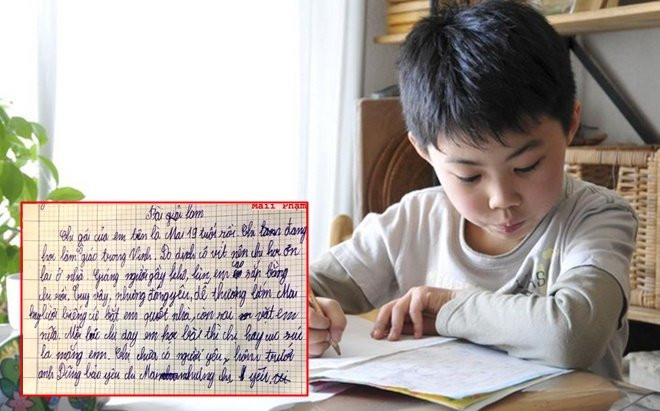 Maii Phạm
Bài giải làm
Chị gái của em tên là Mai 19 tuổi rồi. Chị đang
học làm giáo trong Vinh. Do dịch cô vít nên chị học ơn
lai ở nhà. Giáng người gầy nhỏ, lùn, em sắp bằng
chị rồi. Tuy vậy, nhưng đáng yêu, dễ thương lắm. Mai
hay lười biếng và bắt em quét nhà, còn sai vặt em
nữa. Mỗi lúc chị dạy em học bài thì chị hay tục
là mắng em. Chị chưa có người yêu, hôm trước
anh Dũng bảo yêu chị Mai nhưng chị yêu